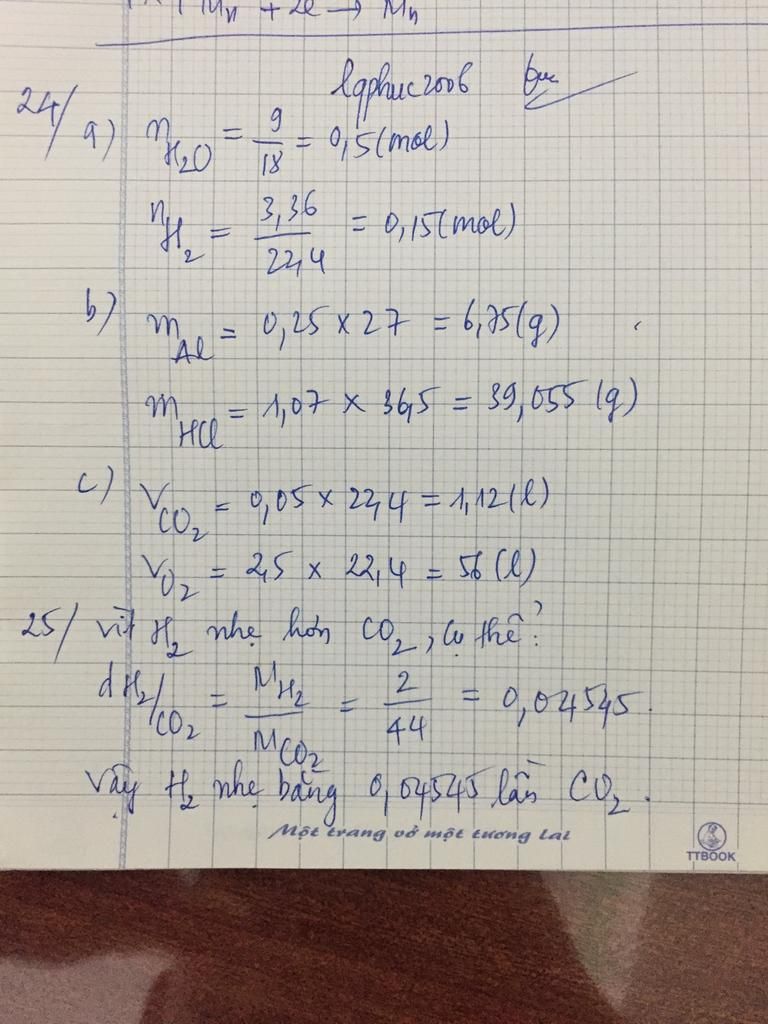 Mn + 2e → Mn
lqphuc2006
24/ a) nH2O = 9/18 = 0,5 (mol)
nH2 = 3,36/22,4 = 0,15 (mol)
b) mAl = 0,25 × 27 = 6,75 (g)
mHCl = 1,07 × 36,5 = 39,055 (g)
c) VCO2 = 0,05 × 22,4 = 1,12 (l)
VO2 = 2,5 × 22,4 = 56 (l)
25/ Vì H2 nhẹ hơn CO2, cụ thể:
dH2/CO2 = MH2/MCO2 = 2/44 = 0,04545.
Vậy H2 nhẹ bằng 0,04545 lần CO2.
Một trang vở một tương lai
TTBOOK